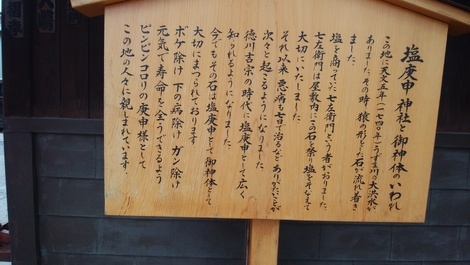 塩庚申神社と御神体のいわれ
この地に天文五年(一七四〇)うずま川の大洪水が
ありました。その時猿の形をした石が流れ着き
ました。
塩を商っていた七左衛門という者がおりました。
七左衛門は屋敷内にこの石を祭り塩をそなえて
大切にいたしました。
それ以来悪病も一日で治るなどありがたいことが
次々と起こるようになりました。
徳川吉宗の時代に塩庚申として広く
知られるようになりました。
今でもその石は塩庚申として御神体として
大切にまつられております
ボケ除け下の病除けガン除け
元気で寿命を全うできるよう
ピンピンコロリの庚申様として
この地の人々に親しまれています。